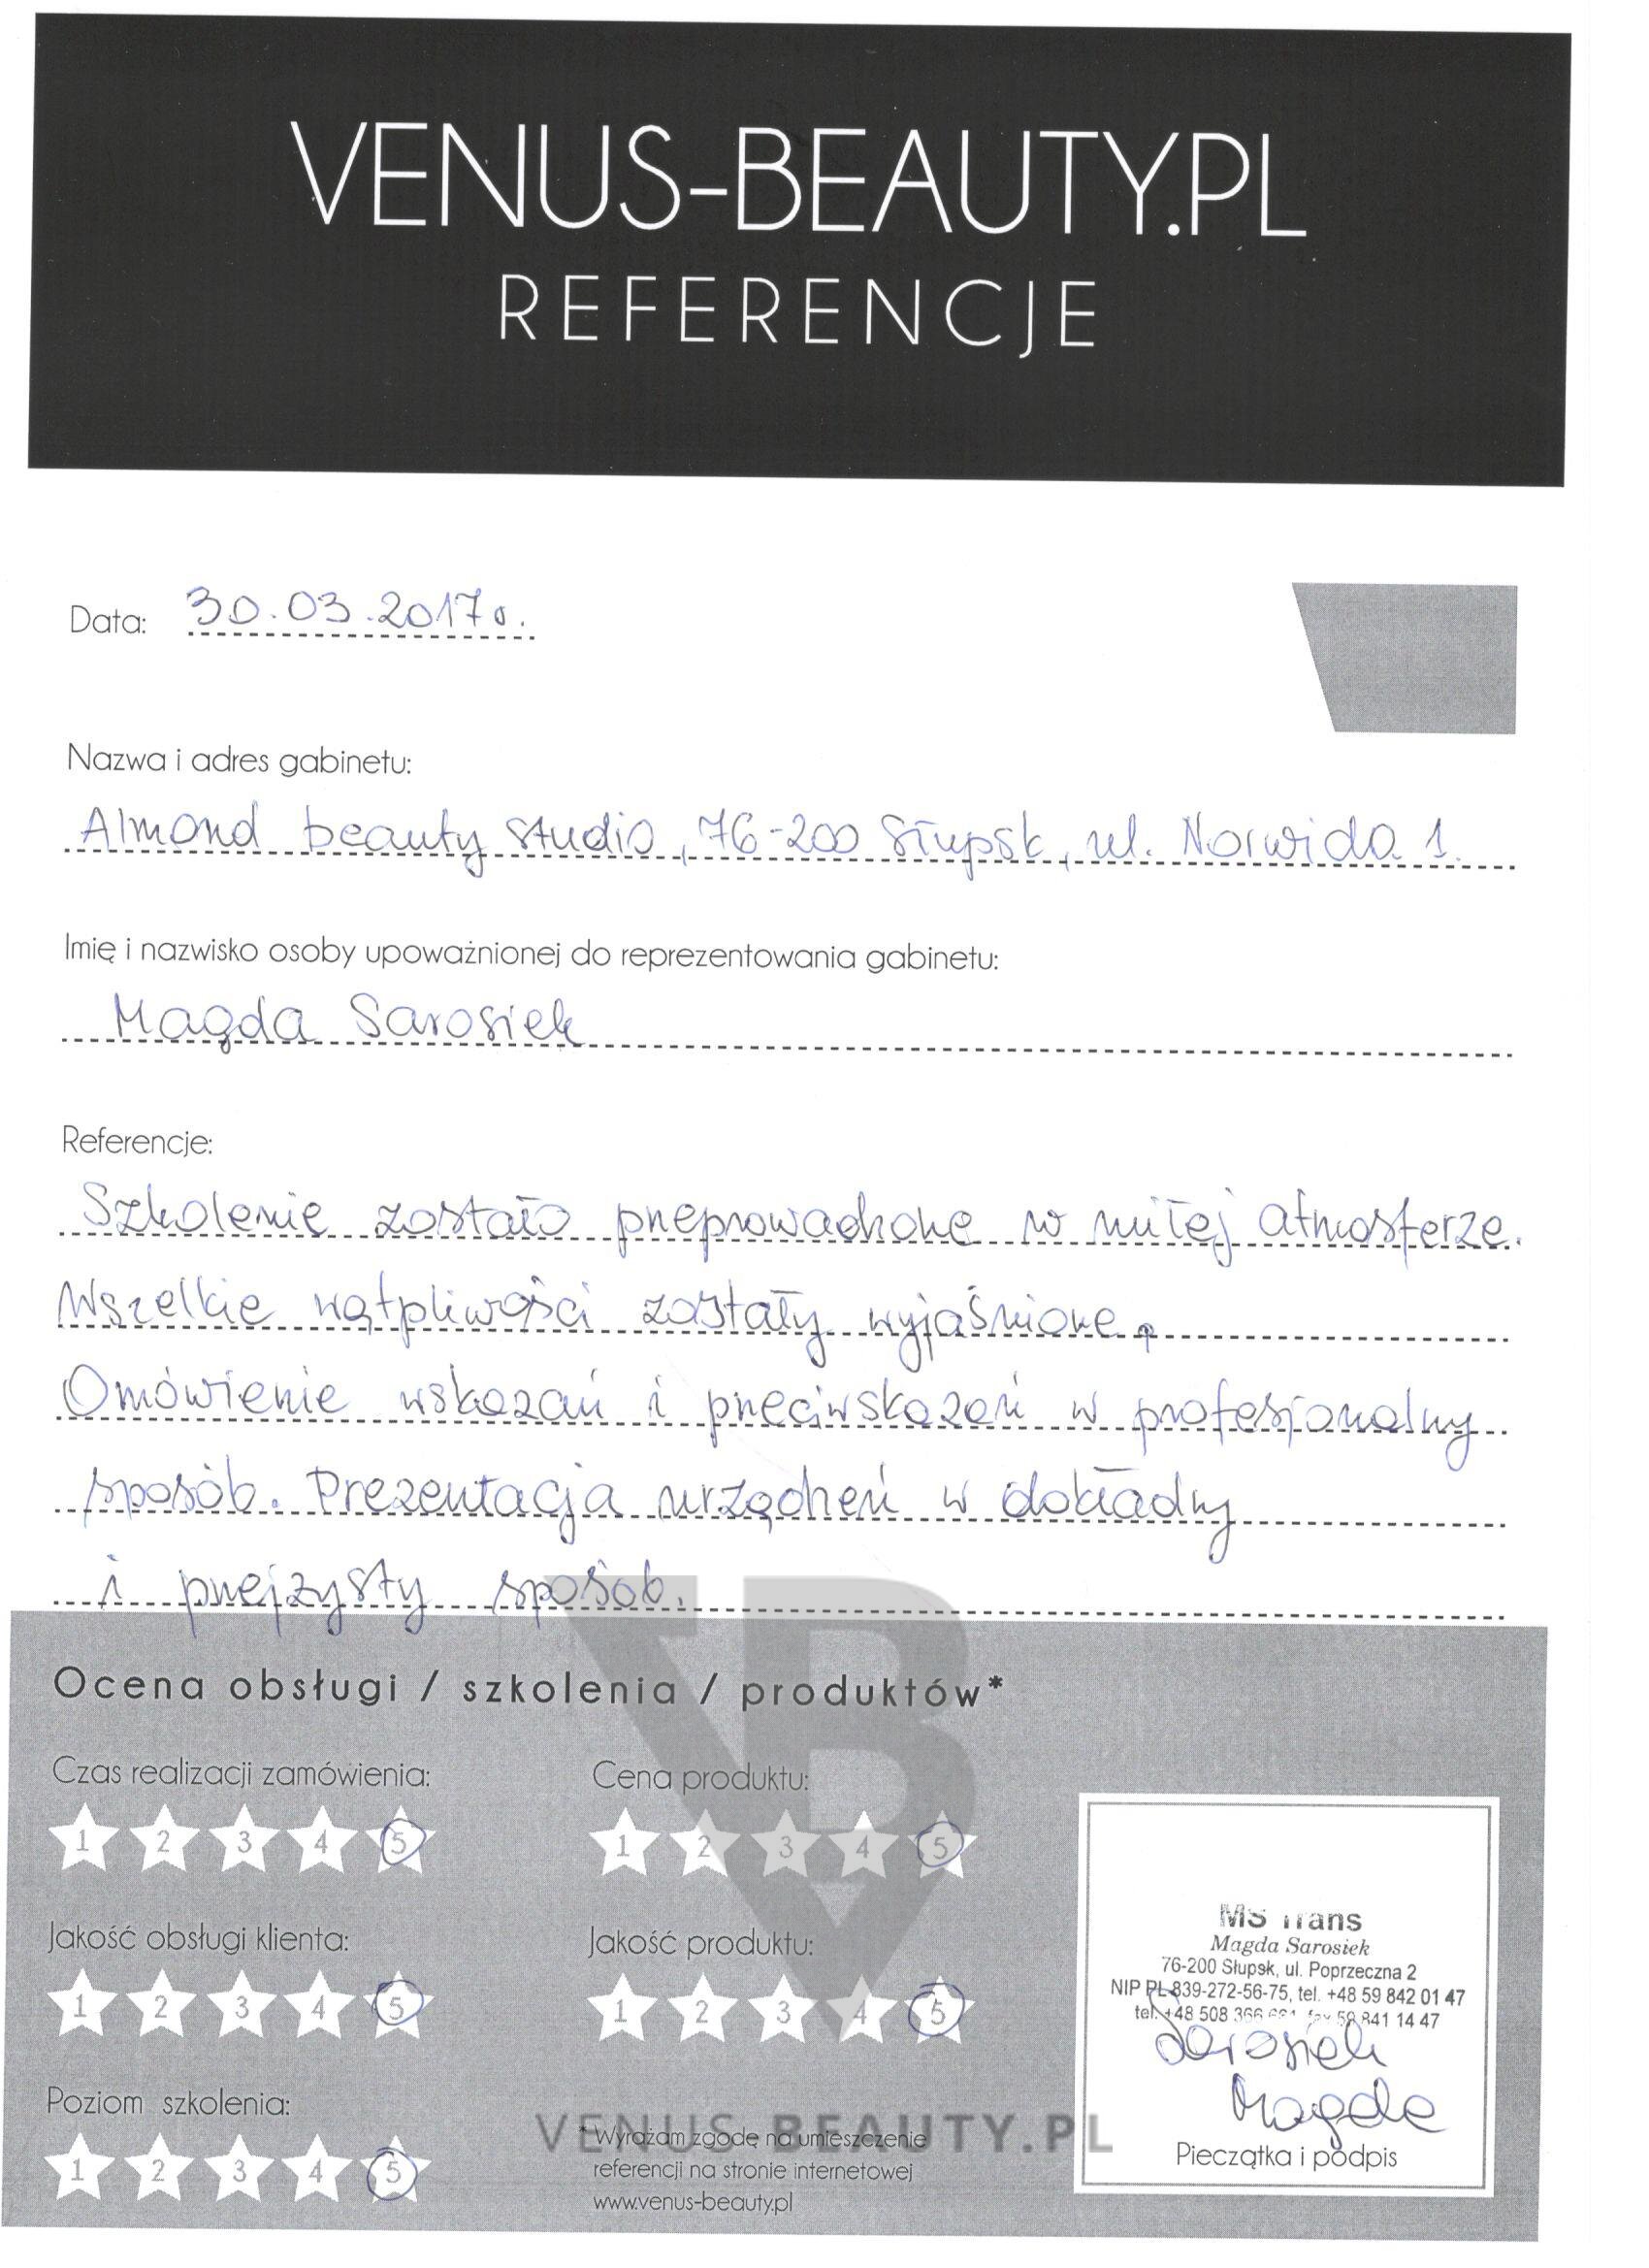 VENUS-BEAUTY.PL
REFERENCJE
Data: 30.03.2017r.
Nazwa i adres gabinetu:
Almond beauty studio, 76-200 Słupsk, ul. Norwida 1.
Imię i nazwisko osoby upoważnionej do reprezentowania gabinetu:
Magda Sarosiek
Referencje:
Szkolenie zostało przeprowadzone w miłej atmosferze.
Wszelkie wątpliwości zostały wyjaśnione.
Omówienie wskazań i przeciwskazań w profesjonalny
sposób. Prezentacja urządzeń w dokładny
i przejzysty sposób.
Ocena obsługi / szkolenia / produktów*
Czas realizacji zamówienia:
1 2 3 4 5
Cena produktu:
1 2 3 4 5
Jakość obsługi klienta:
1 2 3 4 5
Jakość produktu:
1 2 3 4 5
Poziom szkolenia:
1 2 3 4 5
VB
VENUS-BEAUTY.PL
* Wyrażam zgodę na umieszczenie
referencji na stronie internetowej
www.venus-beauty.pl
MS Trans
Magda Sarosiek
76-200 Słupsk, ul. Poprzeczna 2
NIP PL 839-272-56-75, tel. +48 59 842 01 47
tel. +48 508 366 fax 59 841 14 47
Sarosiek
Magda
Pieczątka i podpis